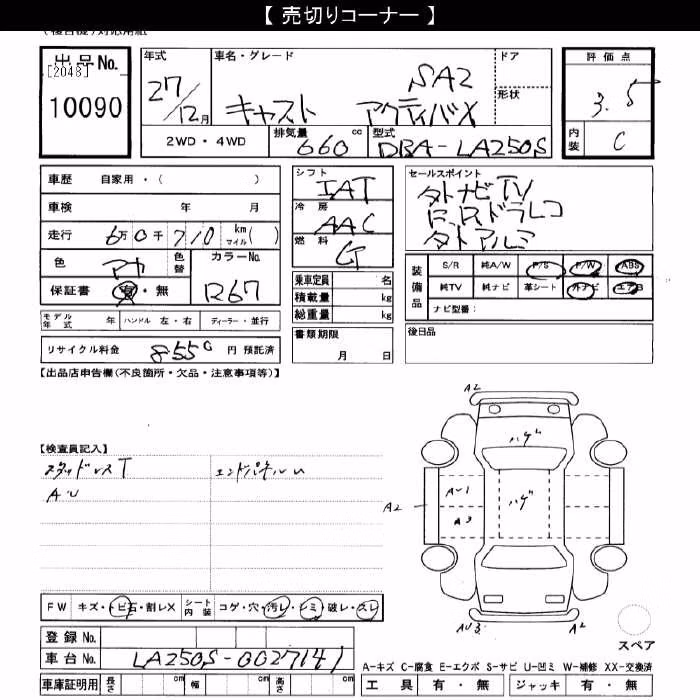 【 売切りコーナー 】
出品No.
[2048]
10090
年式
27/12月
車名・グレード
キャスト アクティバX SA2
ドア
形状
2WD・4WD
排気量 cc
660
型式
DBA-LA250S
評価点
3.5
内装
C
車歴 自家用・( )
車検 年 月
走行 6万0千710 km マイル( )
色 アカ
色替
カラーNo.
R67
保証書 有・無
モデル年式 年 ハンドル 左・右 ディーラー・並行
リサイクル料金 8550 円 預託済
シフト
IAT
冷房
AAC
燃料
G
乗車定員 名
積載量 kg
総重量 kg
書類期限
月 日
セールスポイント
タトナビTV
E.R.ドラレコ
タトアルミ
装備品
S/R 純A/W P/S P/W ABS
純TV 純ナビ 革シート 外ナビ エアB
ナビ型番:
後日品
【出品店申告欄(不良箇所・欠品・注意事項等)】
【検査員記入】
スタッドレスT
AU
エンドパネルU
A2
ハゲ
AU1
ハゲ
A2
A3
AU3
A2
スペア
FW キズ・トビ石・割レX シート内装 コゲ・穴・汚レ・シミ・破レ・スレ
登録No.
車台No. LA250S-0027141
車庫証明用 長さ cm 幅 cm 高さ cm
A-キズ C-腐食 E-エクボ S-サビ U-凹ミ W-補修 XX-交換済
工具 有・無 ジャッキ 有・無